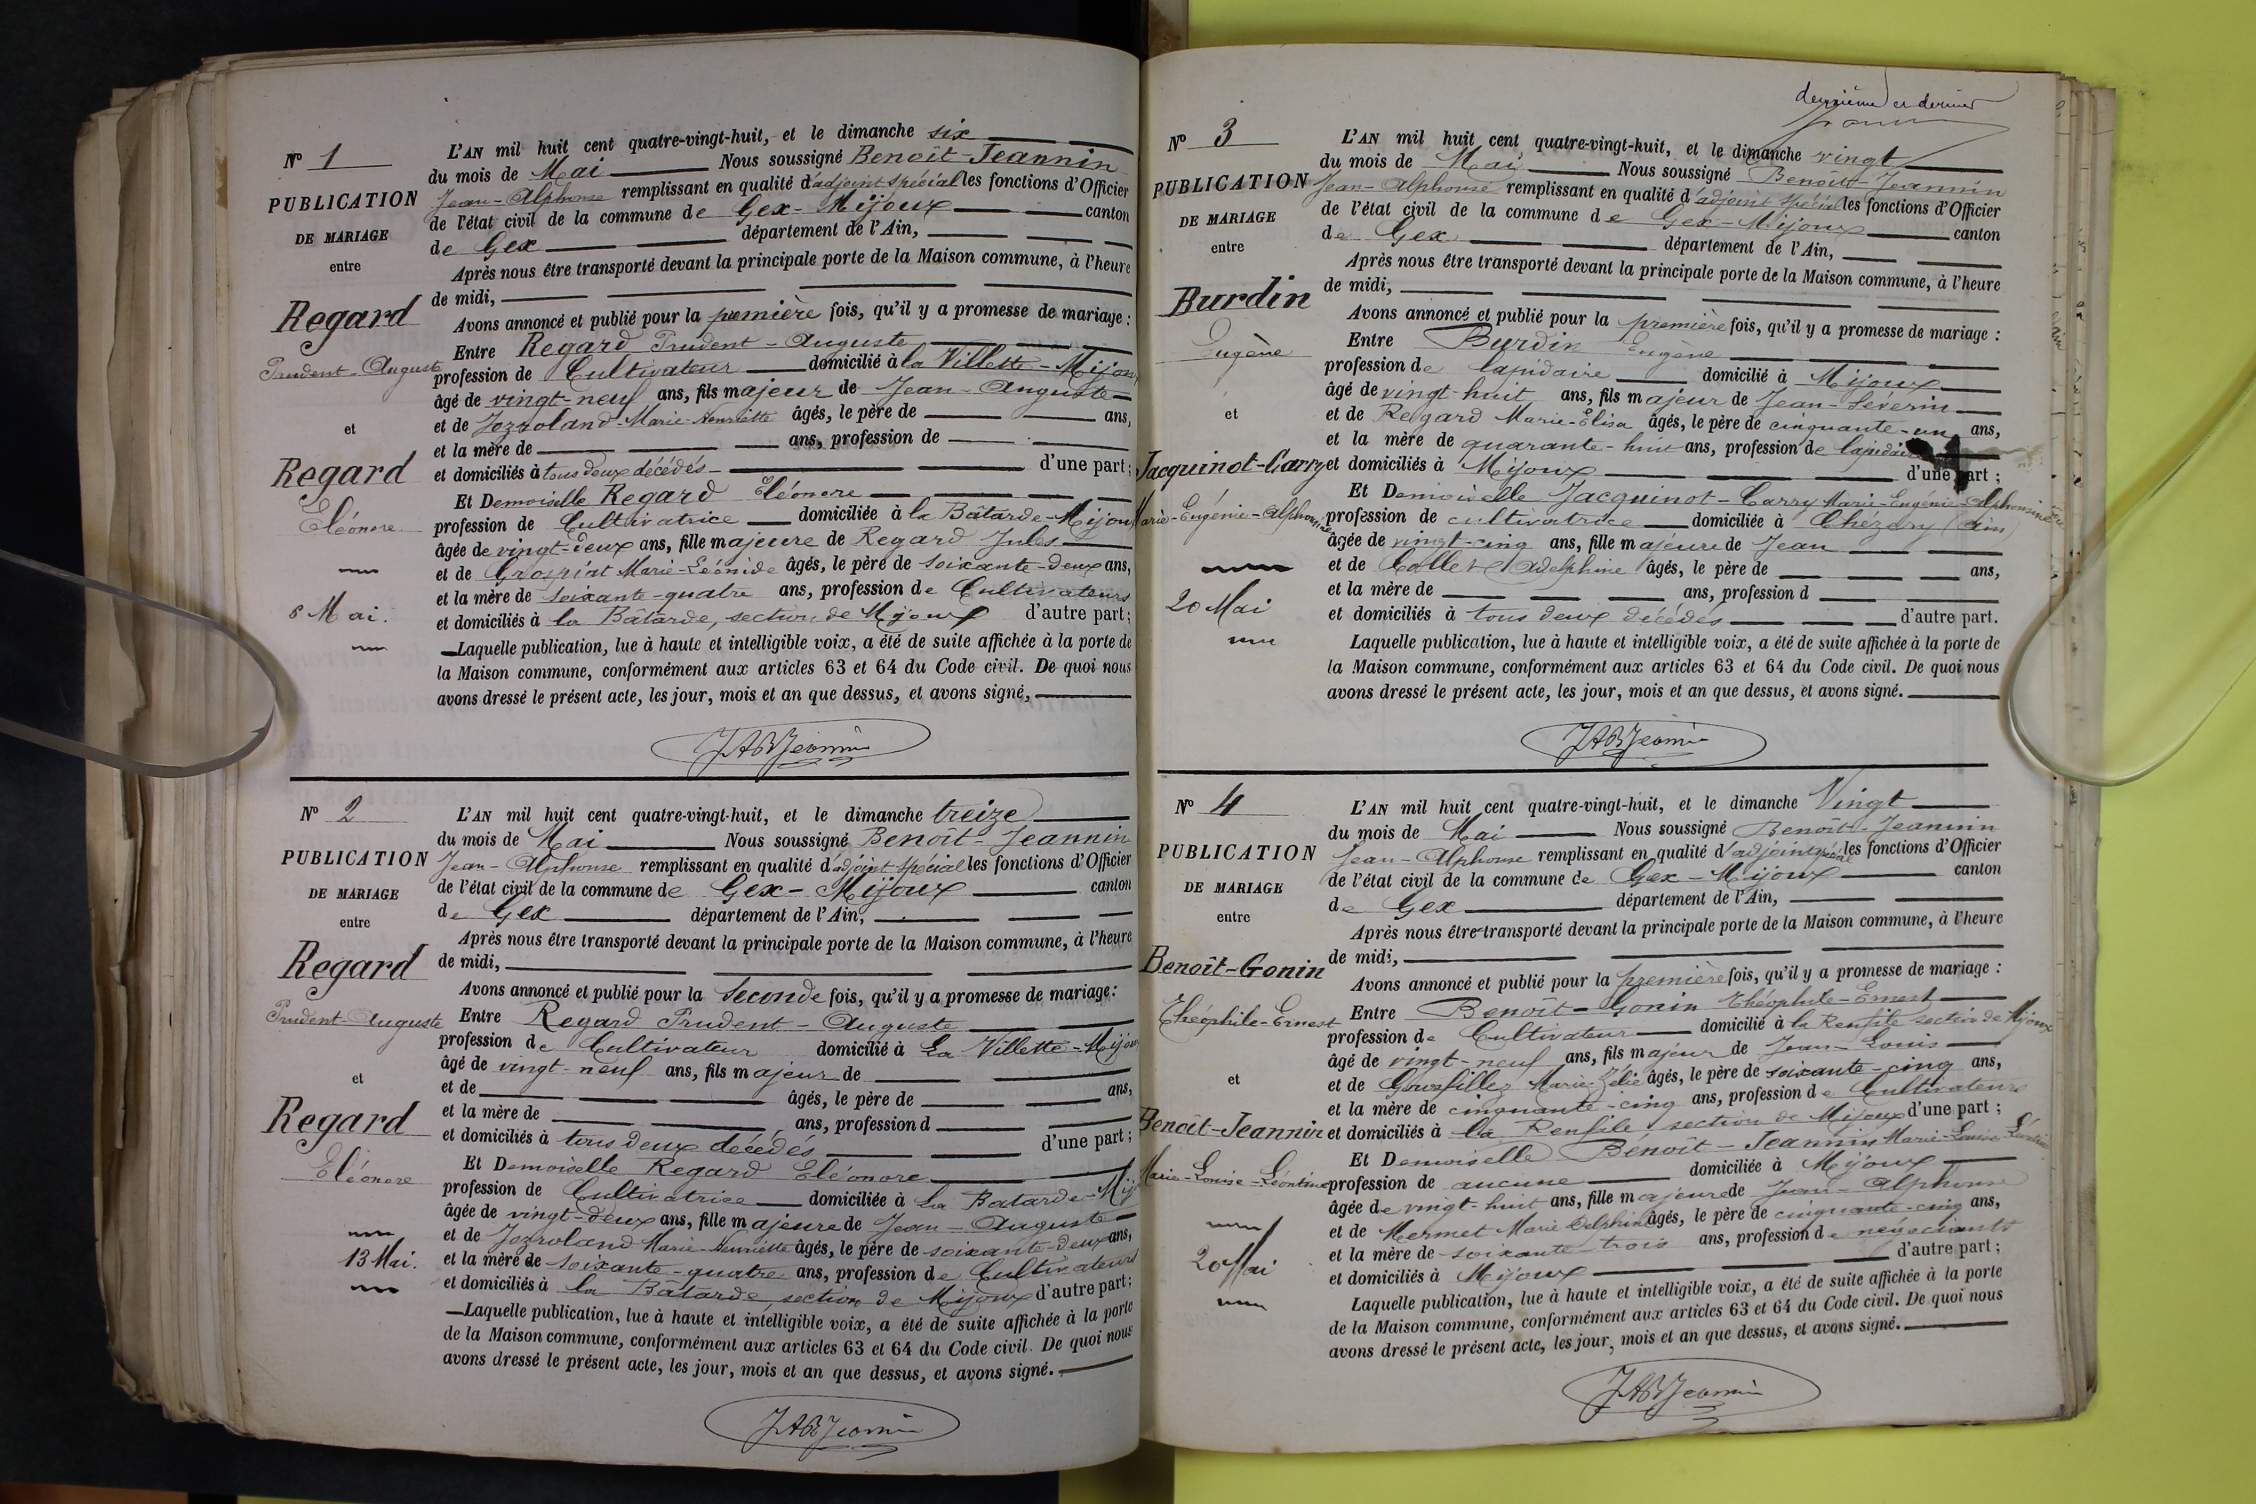 N° 1
PUBLICATION
DE MARIAGE
entre
Regard
Prudent-Auguste
et
Regard
Eléonore
6 Mai.
L'AN mil huit cent quatre-vingt-huit, et le dimanche six
du mois de Mai Nous soussigné Benoît-Jeannin
Jean-Alphonse remplissant en qualité d'adjoint spécial les fonctions d'Officier
de l'état civil de la commune de Gex-Mijoux canton
de Gex département de l'Ain,
Après nous être transporté devant la principale porte de la Maison commune, à l'heure
de midi,
Avons annoncé et publié pour la première fois, qu'il y a promesse de mariage :
Entre Regard Prudent-Auguste
profession de Cultivateur domicilié à la Villette-Mijoux
âgé de vingt-neuf ans, fils majeur de Jean-Auguste
et de Jozroland-Marie-Henriette âgés, le père de ans,
et la mère de ans, profession de
et domiciliés à tous deux décédés d'une part ;
Et Demoiselle Regard Eléonore
profession de Cultivatrice domiciliée à la Bâtarde-Mijoux
âgée de vingt-deux ans, fille majeure de Regard Jules
et de Grospirit Marie-Léonide âgés, le père de soixante-deux ans,
et la mère de soixante-quatre ans, profession de Cultivateurs
et domiciliés à la Bâtarde, section de Mijoux d'autre part ;
Laquelle publication, lue à haute et intelligible voix, a été de suite affichée à la porte de
la Maison commune, conformément aux articles 63 et 64 du Code civil. De quoi nous
avons dressé le présent acte, les jour, mois et an que dessus, et avons signé,
JABJeannin
N° 2
PUBLICATION
DE MARIAGE
entre
Regard
Prudent-Auguste
et
Regard
Eléonore
13 Mai.
L'AN mil huit cent quatre-vingt-huit, et le dimanche treize
du mois de Mai Nous soussigné Benoît-Jeannin
Jean-Alphonse remplissant en qualité d'adjoint spécial les fonctions d'Officier
de l'état civil de la commune de Gex-Mijoux canton
de Gex département de l'Ain,
Après nous être transporté devant la principale porte de la Maison commune, à l'heure
de midi,
Avons annoncé et publié pour la seconde fois, qu'il y a promesse de mariage :
Entre Regard Prudent-Auguste
profession de Cultivateur domicilié à La Villette-Mijoux
âgé de vingt-neuf ans, fils majeur de
et de âgés, le père de ans,
et la mère de ans, profession d
et domiciliés à tous deux décédés d'une part ;
Et Demoiselle Regard Eléonore
profession de Cultivatrice domiciliée à La Batarde-Mij
âgée de vingt-deux ans, fille majeure de Jean-Auguste
et de Jozroland Marie-Henriette âgés, le père de soixante-deux ans,
et la mère de soixante-quatre ans, profession de Cultivateurs
et domiciliés à la Bâtarde, section de Mijoux d'autre part ;
Laquelle publication, lue à haute et intelligible voix, a été de suite affichée à la porte
de la Maison commune, conformément aux articles 63 et 64 du Code civil. De quoi nous
avons dressé le présent acte, les jour, mois et an que dessus, et avons signé.
JABJeannin
deuxième et dernier
N° 3
PUBLICATION
DE MARIAGE
entre
Burdin
Eugène
et
Jacquinot-Carry
Marie-Eugénie-Alphonsine
20 Mai
L'AN mil huit cent quatre-vingt-huit, et le dimanche vingt
du mois de Mai Nous soussigné Benoît-Jeannin
Jean-Alphonse remplissant en qualité d'adjoint spécial les fonctions d'Officier
de l'état civil de la commune de Gex-Mijoux canton
de Gex département de l'Ain,
Après nous être transporté devant la principale porte de la Maison commune, à l'heure
de midi,
Avons annoncé et publié pour la première fois, qu'il y a promesse de mariage :
Entre Burdin Eugène
profession de lapidaire domicilié à Mijoux
âgé de vingt-huit ans, fils majeur de Jean-Séverin
et de Regard Marie-Elisa âgés, le père de cinquante-un ans,
et la mère de quarante-huit ans, profession de lapidaire
et domiciliés à Mijoux d'une part ;
Et Demoiselle Jacquinot-Carry Marie-Eugénie-Alphonsine
profession de cultivatrice domiciliée à Chézery (Ain)
âgée de vingt-cinq ans, fille majeure de Jean
et de Collet Adelphine âgés, le père de ans,
et la mère de ans, profession d
et domiciliés à tous deux décédés d'autre part.
Laquelle publication, lue à haute et intelligible voix, a été de suite affichée à la porte de
la Maison commune, conformément aux articles 63 et 64 du Code civil. De quoi nous
avons dressé le présent acte, les jour, mois et an que dessus, et avons signé.
JABJeannin
N° 4
PUBLICATION
DE MARIAGE
entre
Benoît-Gonin
Théophile-Ernest
et
Benoît-Jeannin
Marie-Louise-Léontine
20 Mai
L'AN mil huit cent quatre-vingt-huit, et le dimanche Vingt
du mois de Mai Nous soussigné Benoît-Jeannin
Jean-Alphonse remplissant en qualité d'adjoint spécial les fonctions d'Officier
de l'état civil de la commune de Gex-Mijoux canton
de Gex département de l'Ain,
Après nous être transporté devant la principale porte de la Maison commune, à l'heure
de midi,
Avons annoncé et publié pour la première fois, qu'il y a promesse de mariage :
Entre Benoît-Gonin Théophile-Ernest
profession de Cultivateur domicilié à la Renfile section de Mijoux
âgé de vingt-neuf ans, fils majeur de Jean-Louis
et de Grosfillez Marie-Zélie âgés, le père de soixante-cinq ans,
et la mère de cinquante-cinq ans, profession de Cultivateurs
et domiciliés à la Renfile section de Mijoux d'une part ;
Et Demoiselle Benoît-Jeannin Marie-Louise-Léontine
profession de aucune domiciliée à Mijoux
âgée de vingt-huit ans, fille majeure de Jean-Alphonse
et de Mermet Marie Delphine âgés, le père de cinquante-cinq ans,
et la mère de soixante-trois ans, profession de négociants
et domiciliés à Mijoux d'autre part ;
Laquelle publication, lue à haute et intelligible voix, a été de suite affichée à la porte
de la Maison commune, conformément aux articles 63 et 64 du Code civil. De quoi nous
avons dressé le présent acte, les jour, mois et an que dessus, et avons signé.
JABJeannin